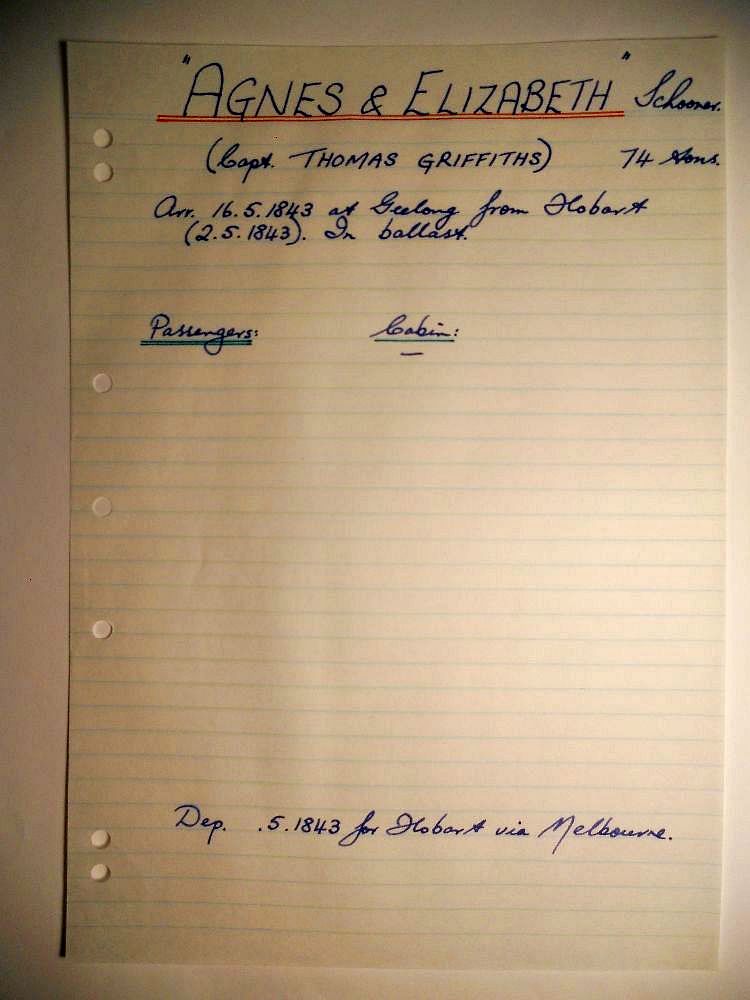 "AGNES & ELIZABETH" Schooner.
(Capt. THOMAS GRIFFITHS) 74 tons.
Arr. 16.5.1843 at Geelong from Hobart
(2.5.1843). In ballast.
Passengers: Cabin:
—
Dep. .5.1843 for Hobart via Melbourne.